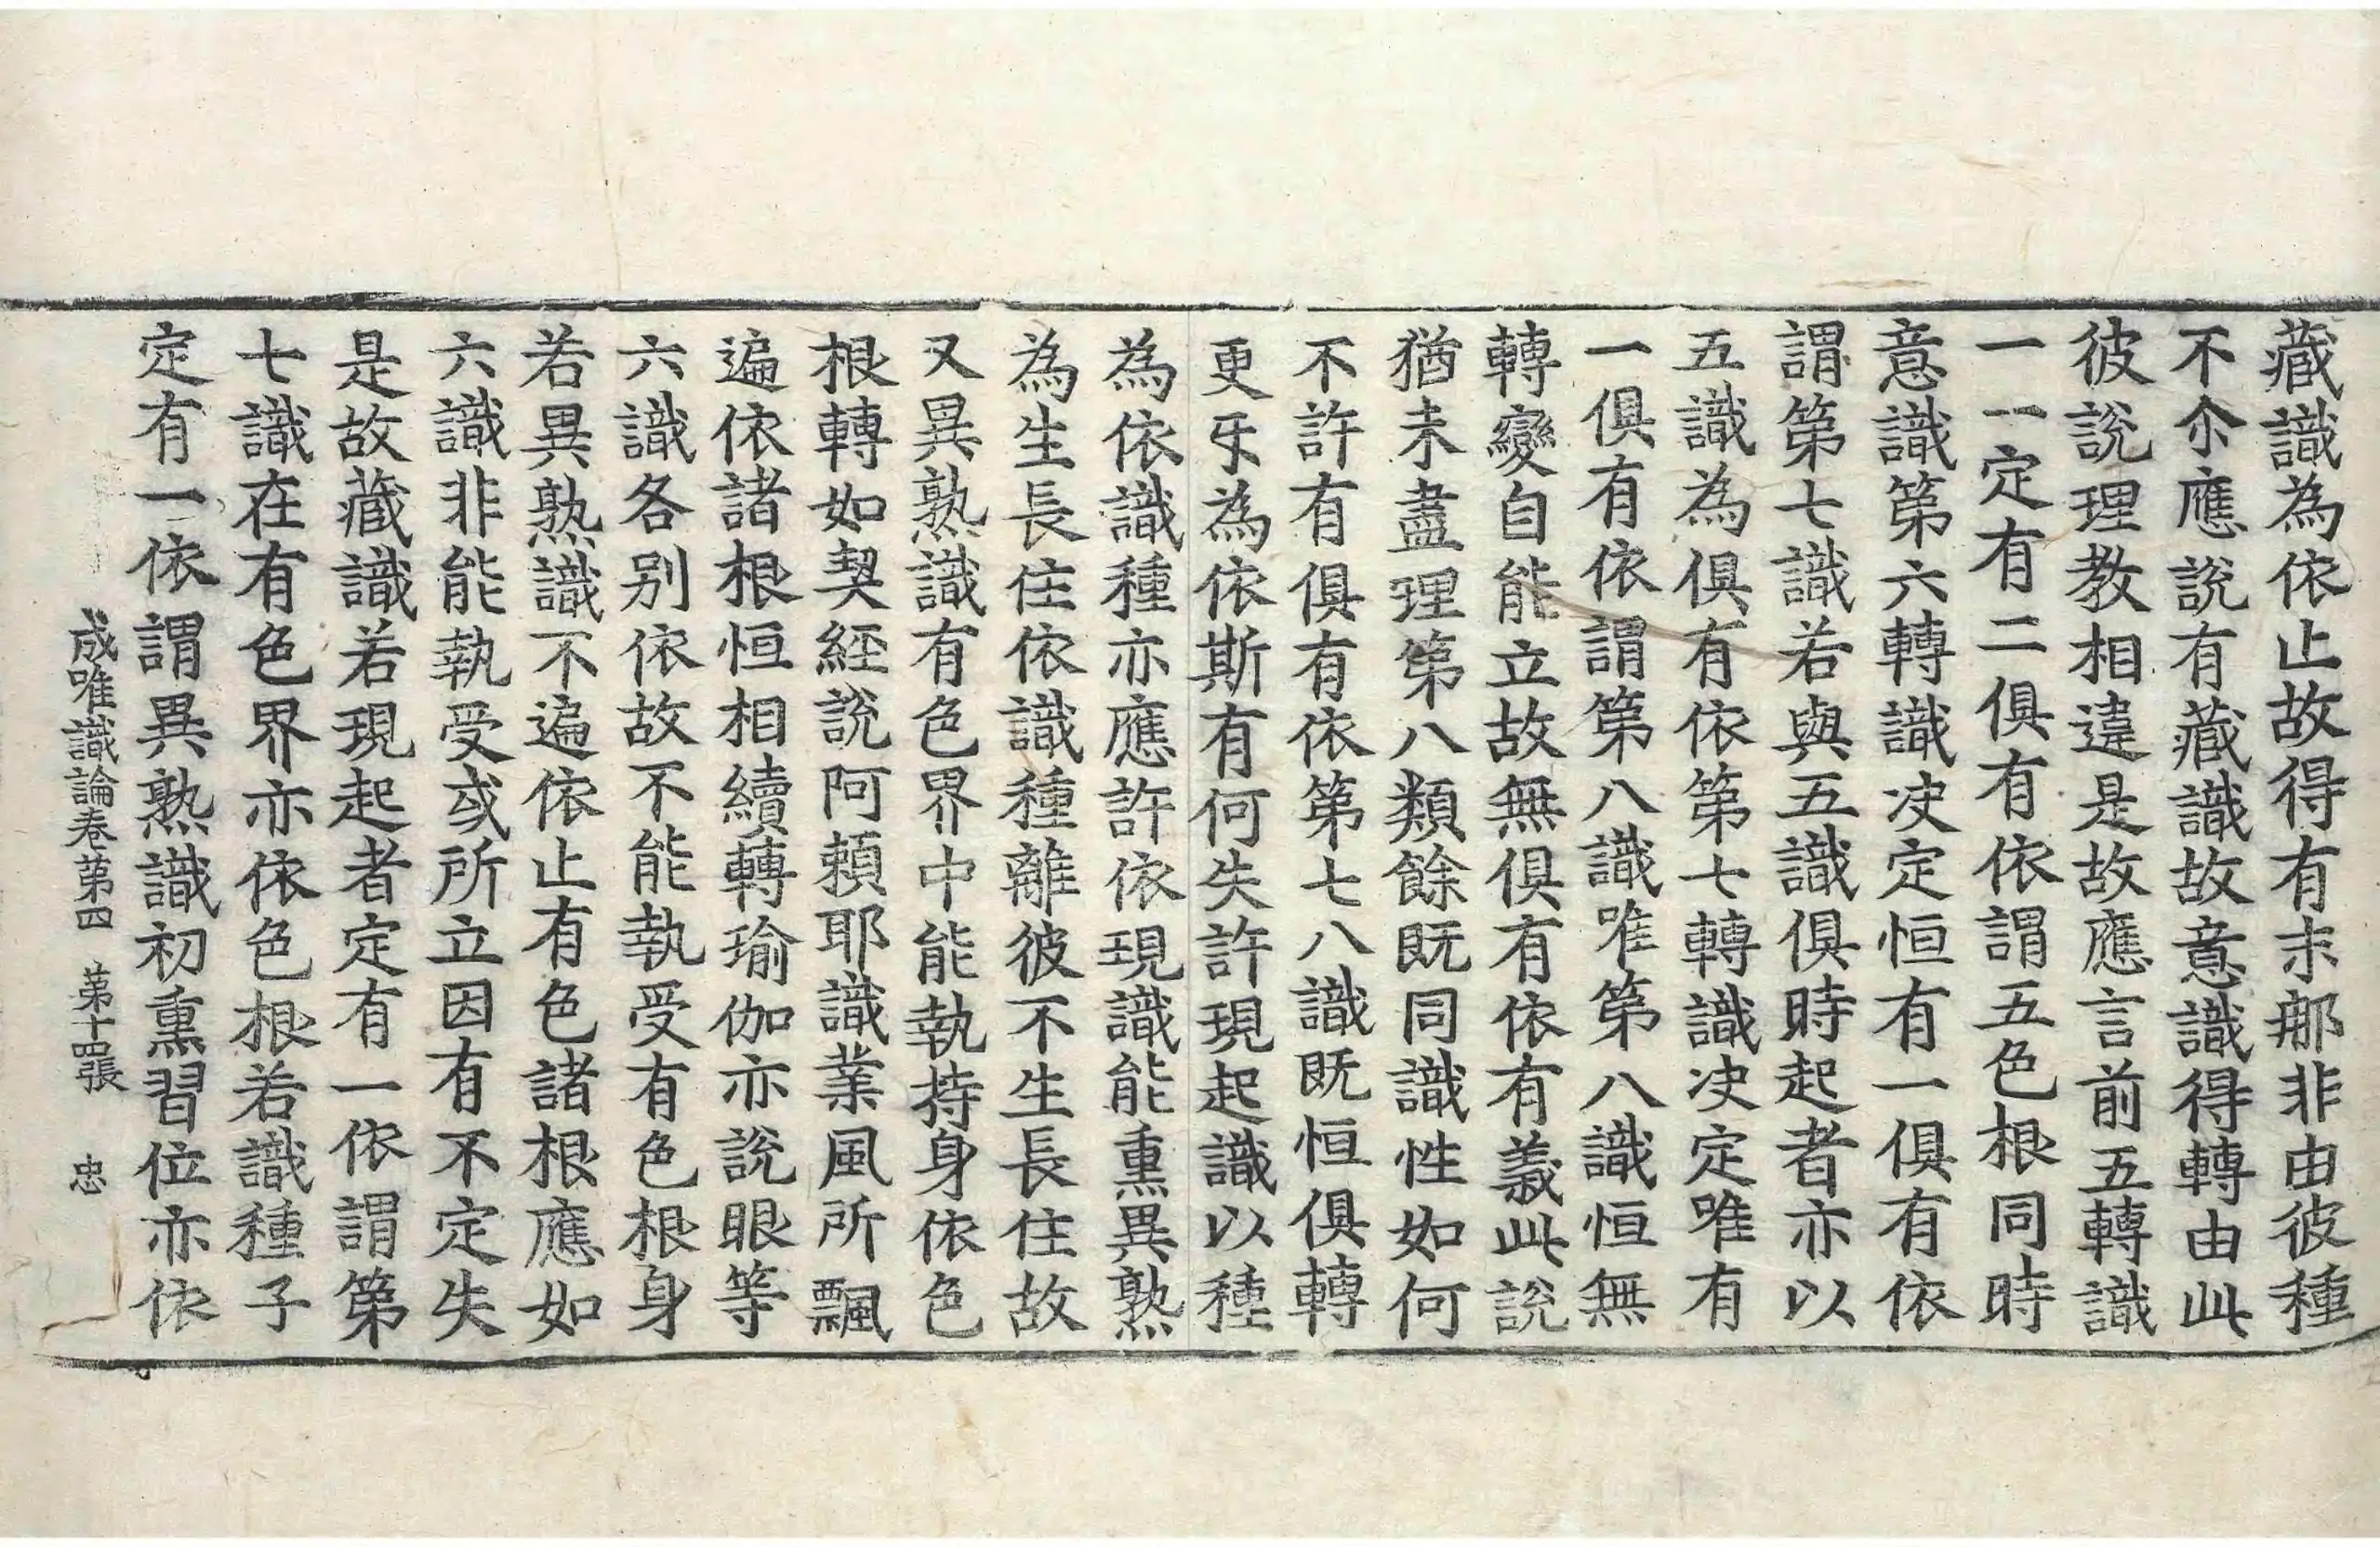 藏識為依止故得有末那非由彼種
不尒應說有藏識故意識得轉由此
彼說理教相違是故應言前五轉識
一一定有二俱有依謂五色根同時
意識第六轉識决定恒有一俱有依
謂第七識若與五識俱時起者亦以
五識為俱有依第七轉識决定唯有
一俱有依謂第八識唯第八識恒無
轉變自能立故無俱有依有義此說
猶未盡理第八類餘既同識性如何
不許有俱有依第七八識既恒俱轉
更㸦為依斯有何失許現起識以種
為依識種亦應許依現識能熏異熟
為生長住依識種離彼不生長住故
又異熟識有色界中能執持身依色
根轉如契經說阿賴耶識業風所飄
遍依諸根恒相續轉瑜伽亦說眼等
六識各別依故不能執受有色根身
若異熟識不遍依止有色諸根應如
六識非能執受或所立因有不定失
是故藏識若現起者定有一依謂第
七識在有色界亦依色根若識種子
定有一依謂異熟識初熏習位亦依
成唯識論卷第四　第十四張　忠